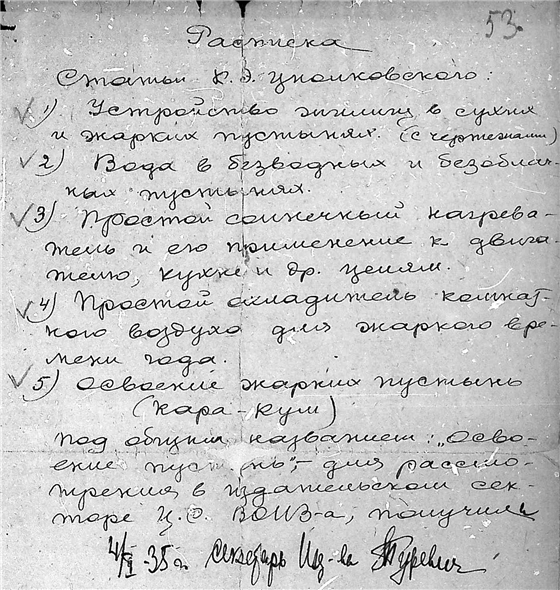 53.
Расписка
Статьи К.Э. Циолковского:
1) Устройство жилищ в сухих
и жарких пустынях. (с чертежами)
2) Вода в безводных и безоблач-
ных пустынях.
3) Простой солнечный нагрева-
тель и его применение к двига
телю, кухне и др. целям.
4) Простой охладитель комнат-
ного воздуха для жаркого вре-
мени года.
5) Освоение жарких пустынь
(Кара-Кум)
под общим названием: „Осво-
ение пустынь“,- для рассмо-
трения в издательском сек-
торе Ц.С. ВОИЗ-а, получила
35 г. секретарь Изд-ва Гуревич